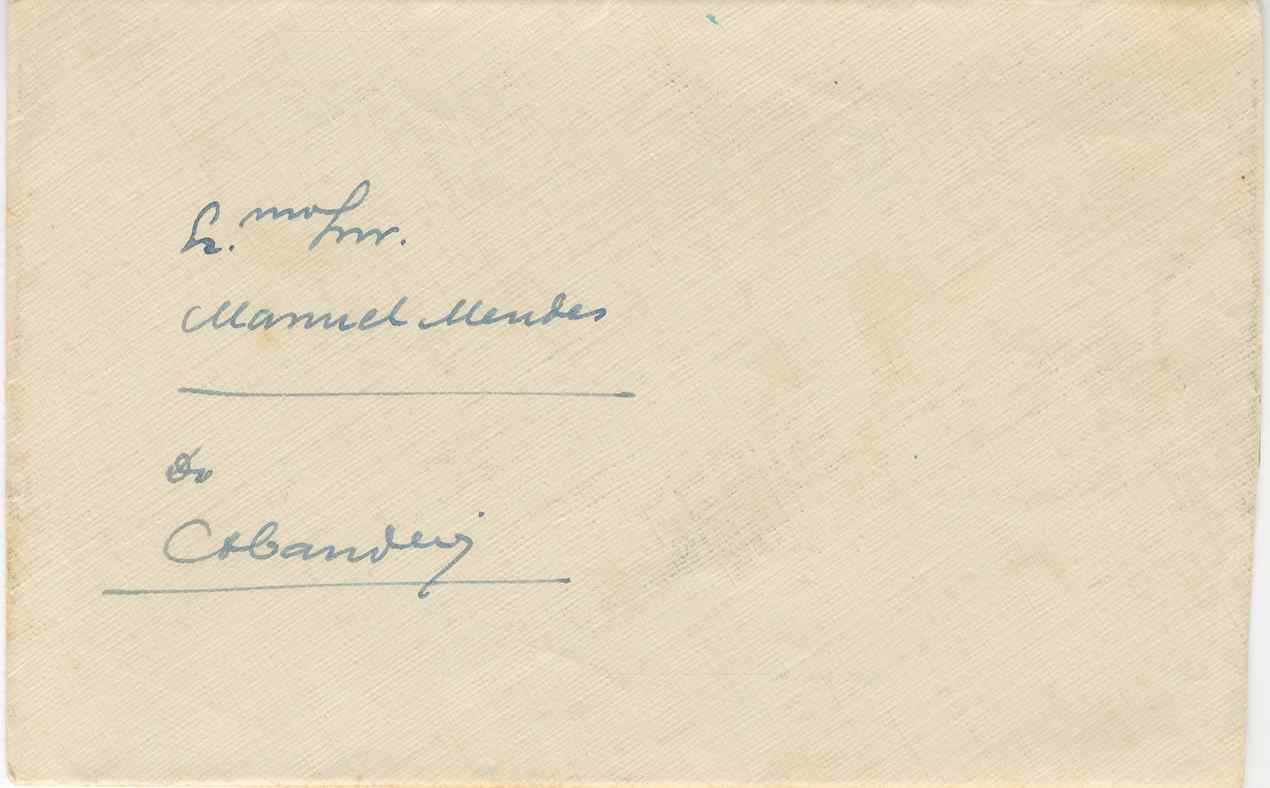 Ex.mo Snr.
Manuel Mendes
Do